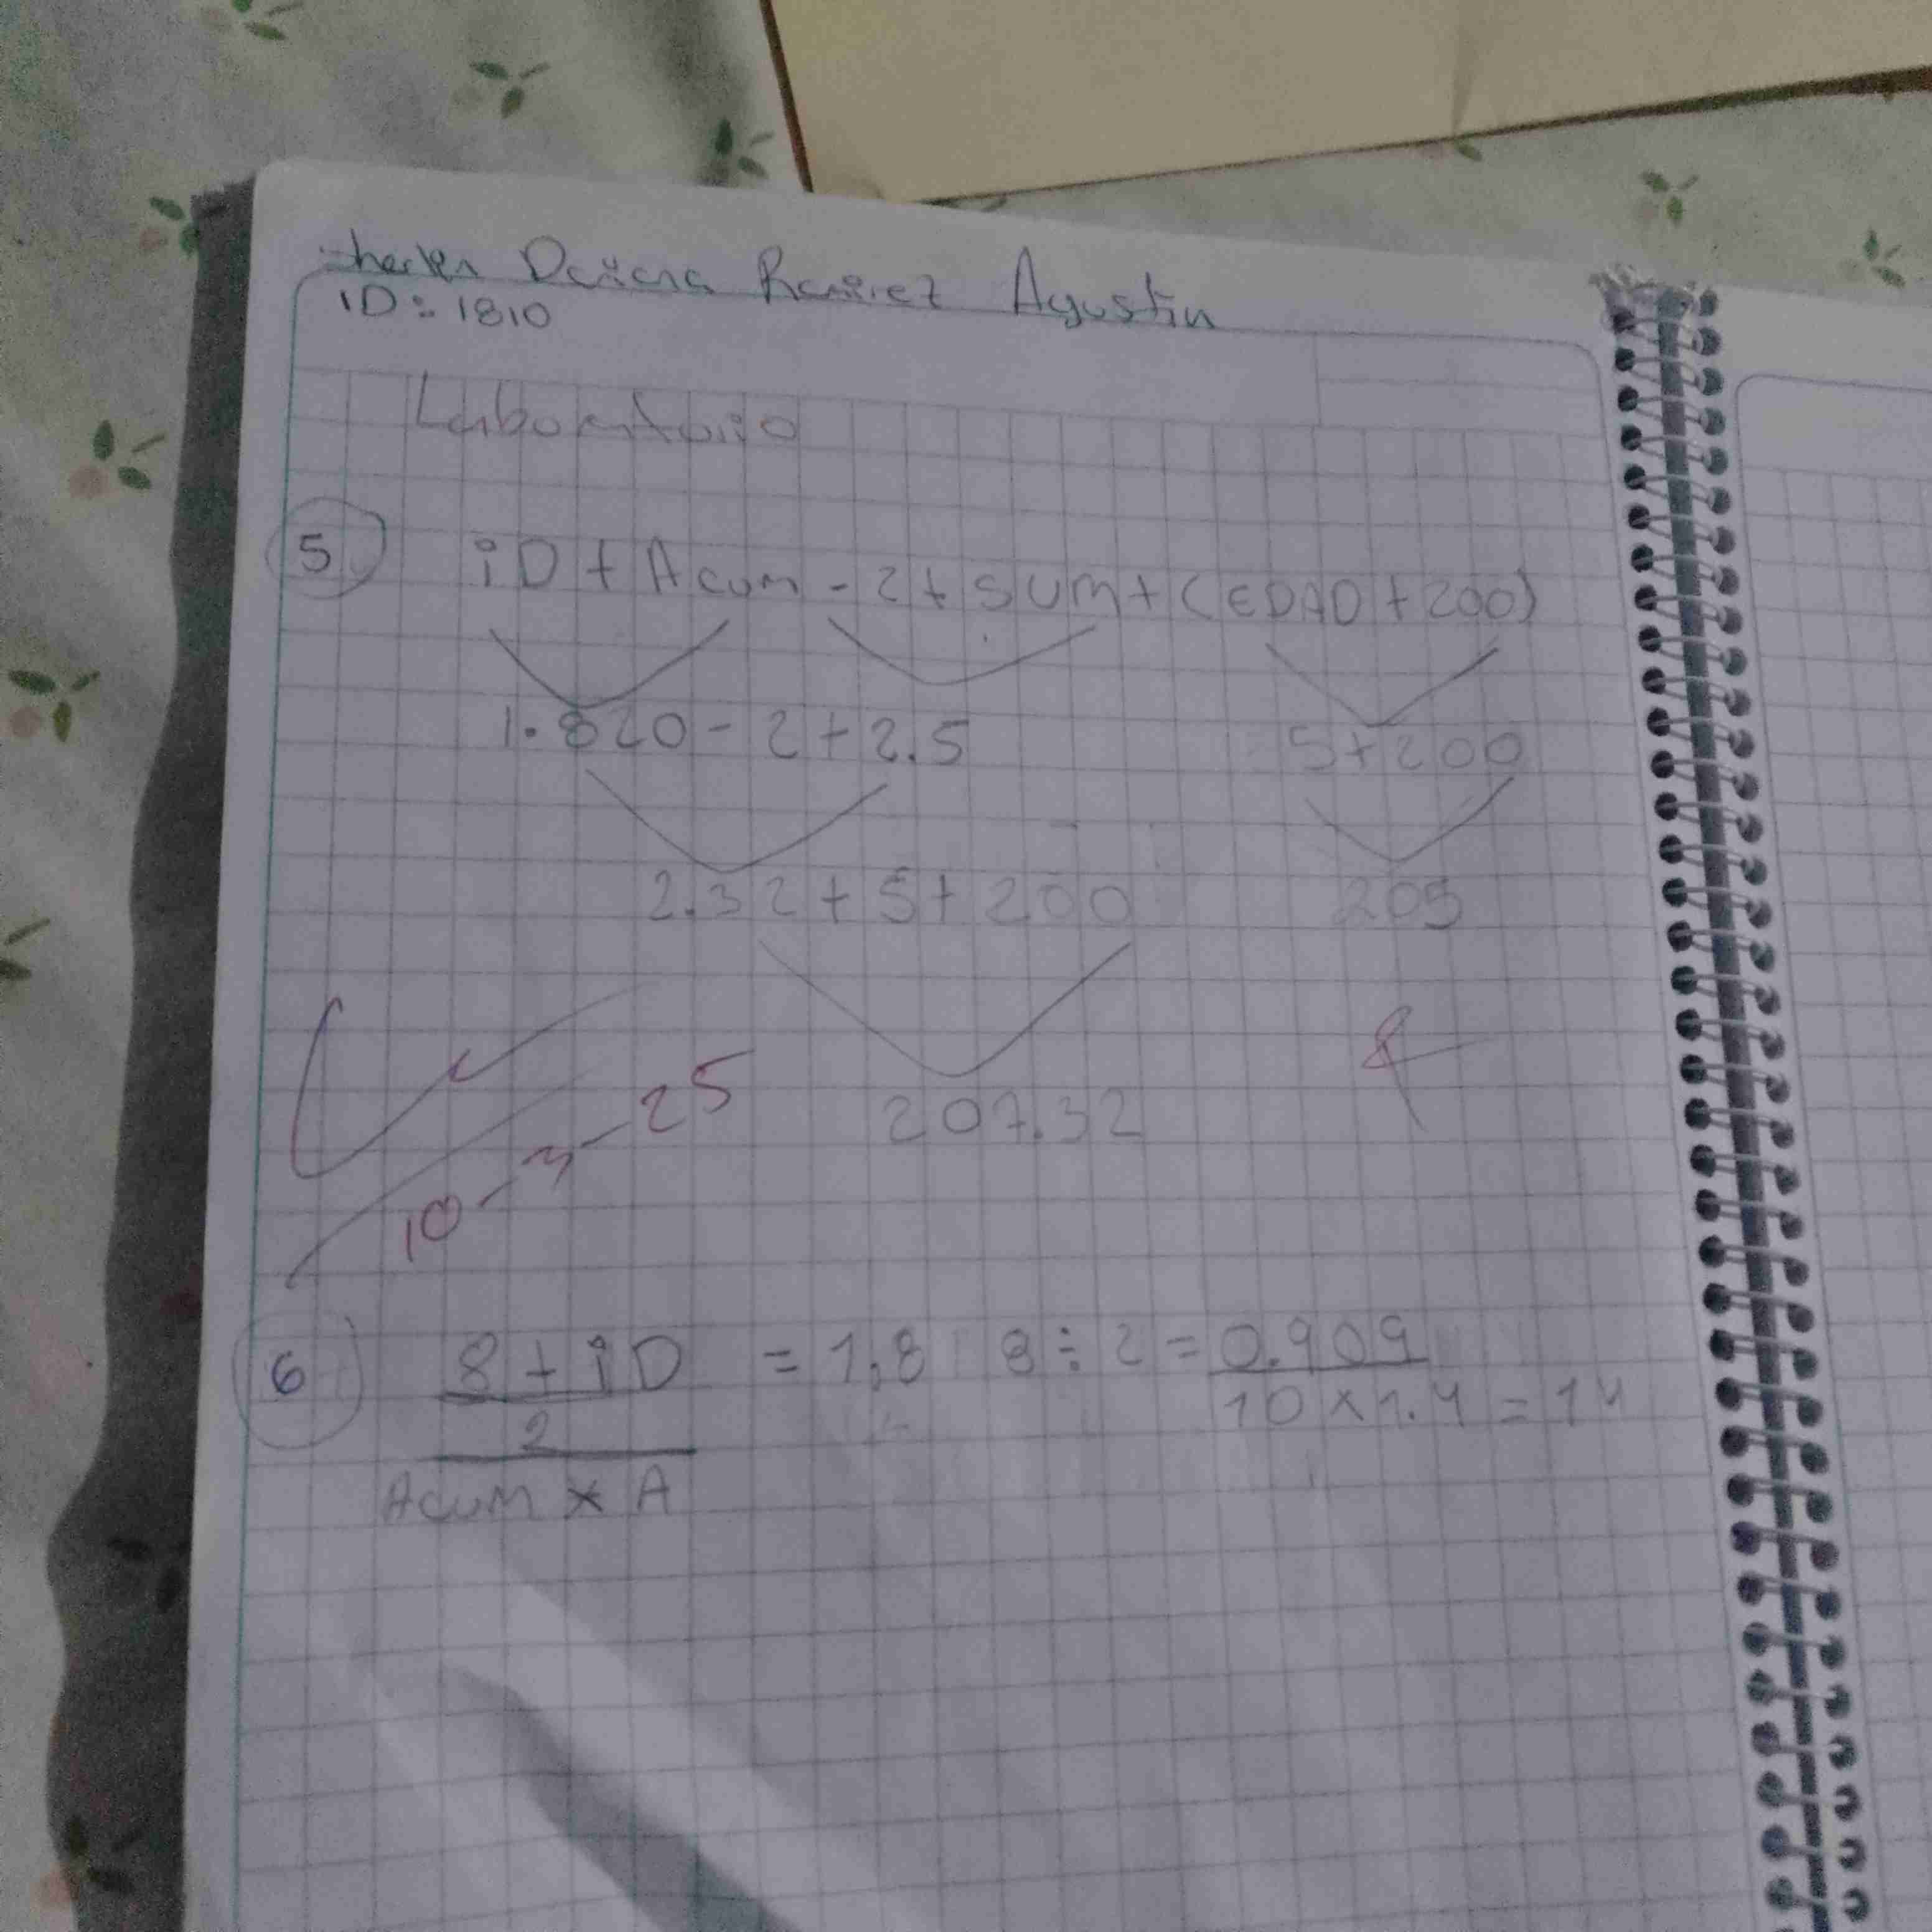 Dayana Ramirez Agustin
iD: 1810
Laboratorio
5 iD + Acum - 2 + SUM + (EDAD + 200)
1.820 - 2 + 2.5 5 + 200
2.32 + 5 + 200 205
207.32
10 - 3 - 25
6 8 + iD = 1,8 8 ÷ 2 = 0.909
2 10 x 1.4 = 14
Acum * A